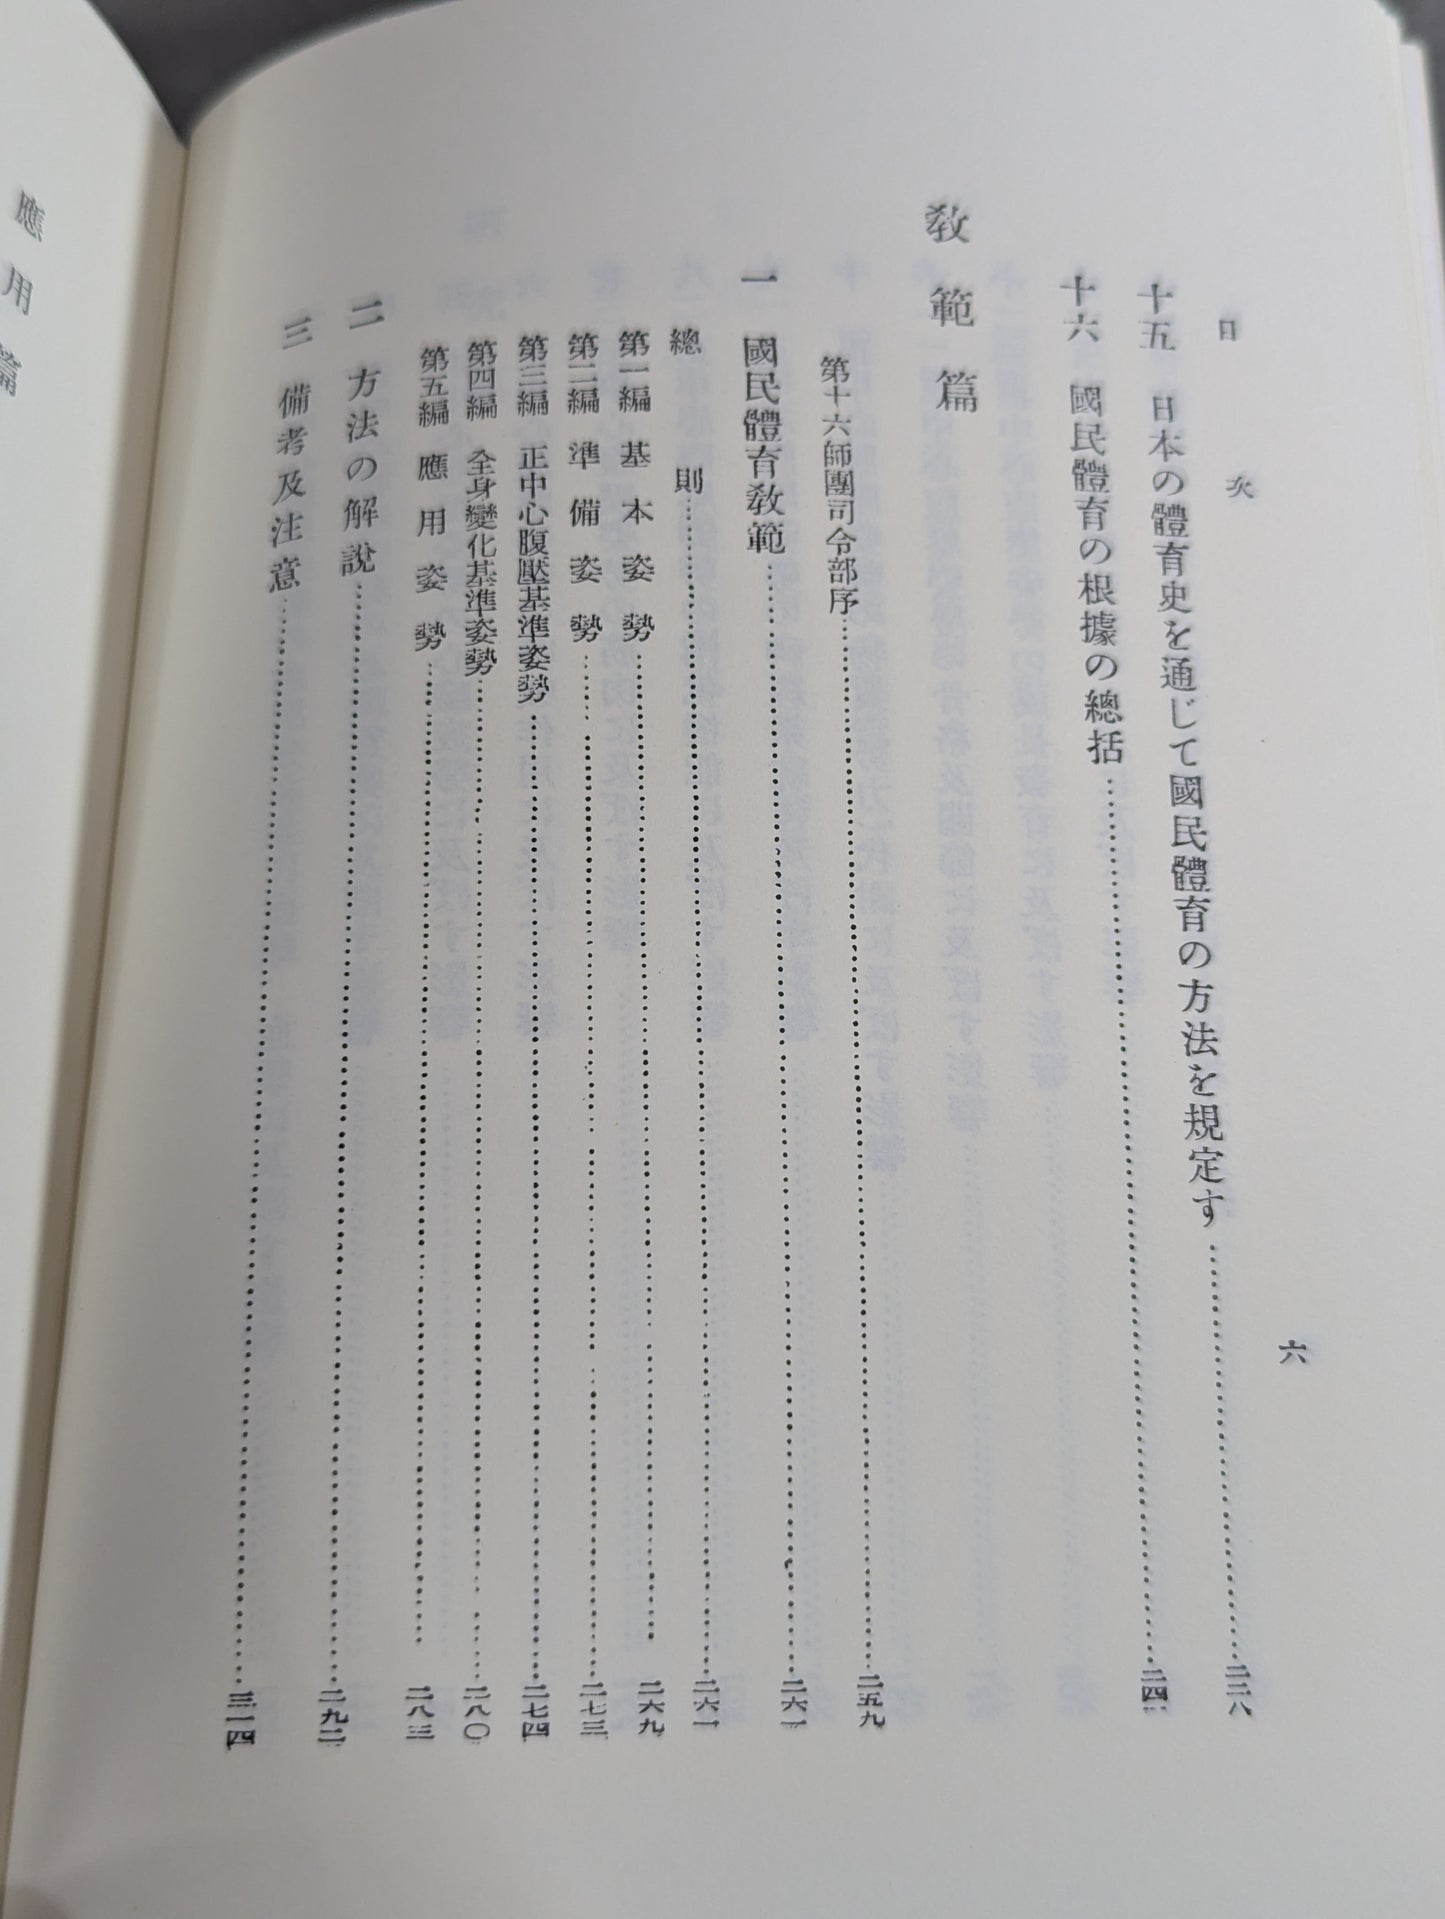 目次
六
十五 日本の體育史を通じて國民體育の方法を規定す……二三八
十六 國民體育の根據の總括……二四
教範篇
第十六師團司令部序……二五九
一 國民體育教範……二六一
總則……二六一
第一編 基本姿勢……二六九
第二編 準備姿勢……二七三
第三編 正中心腹壓基準姿勢……二七四
第四編 全身變化基準姿勢……二八〇
第五編 應用姿勢……二八三
二 方法の解說……二九二
三 備考及注意……三一四
應用篇